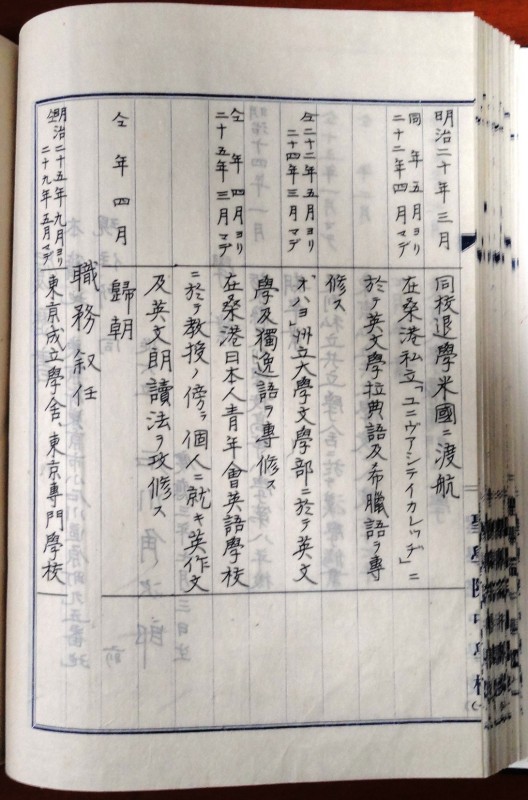 明治二十年三月
同校退學米國ニ渡航
同年五月ヨリ
二十二年四月マデ
在桑港私立「ユニヴアシテイカレッヂ」ニ
於テ英文學拉典語及希臘語ヲ專
修ス
仝二十二年五月ヨリ
二十四年三月マデ
オハヨ」州立大學文學部ニ於テ英文
學及獨逸語ヲ專修ス
仝年四月ヨリ
二十五年三月マデ
在桑港日本人青年會英語學校
ニ於テ教授ノ傍ラ個人ニ就キ英作文
及英文朗讀法ヲ攻修ス
仝年四月
歸朝
職務叙任
明治二十五年九月ヨリ
仝二十九年五月マデ
東京成立學舍、東京專門學校